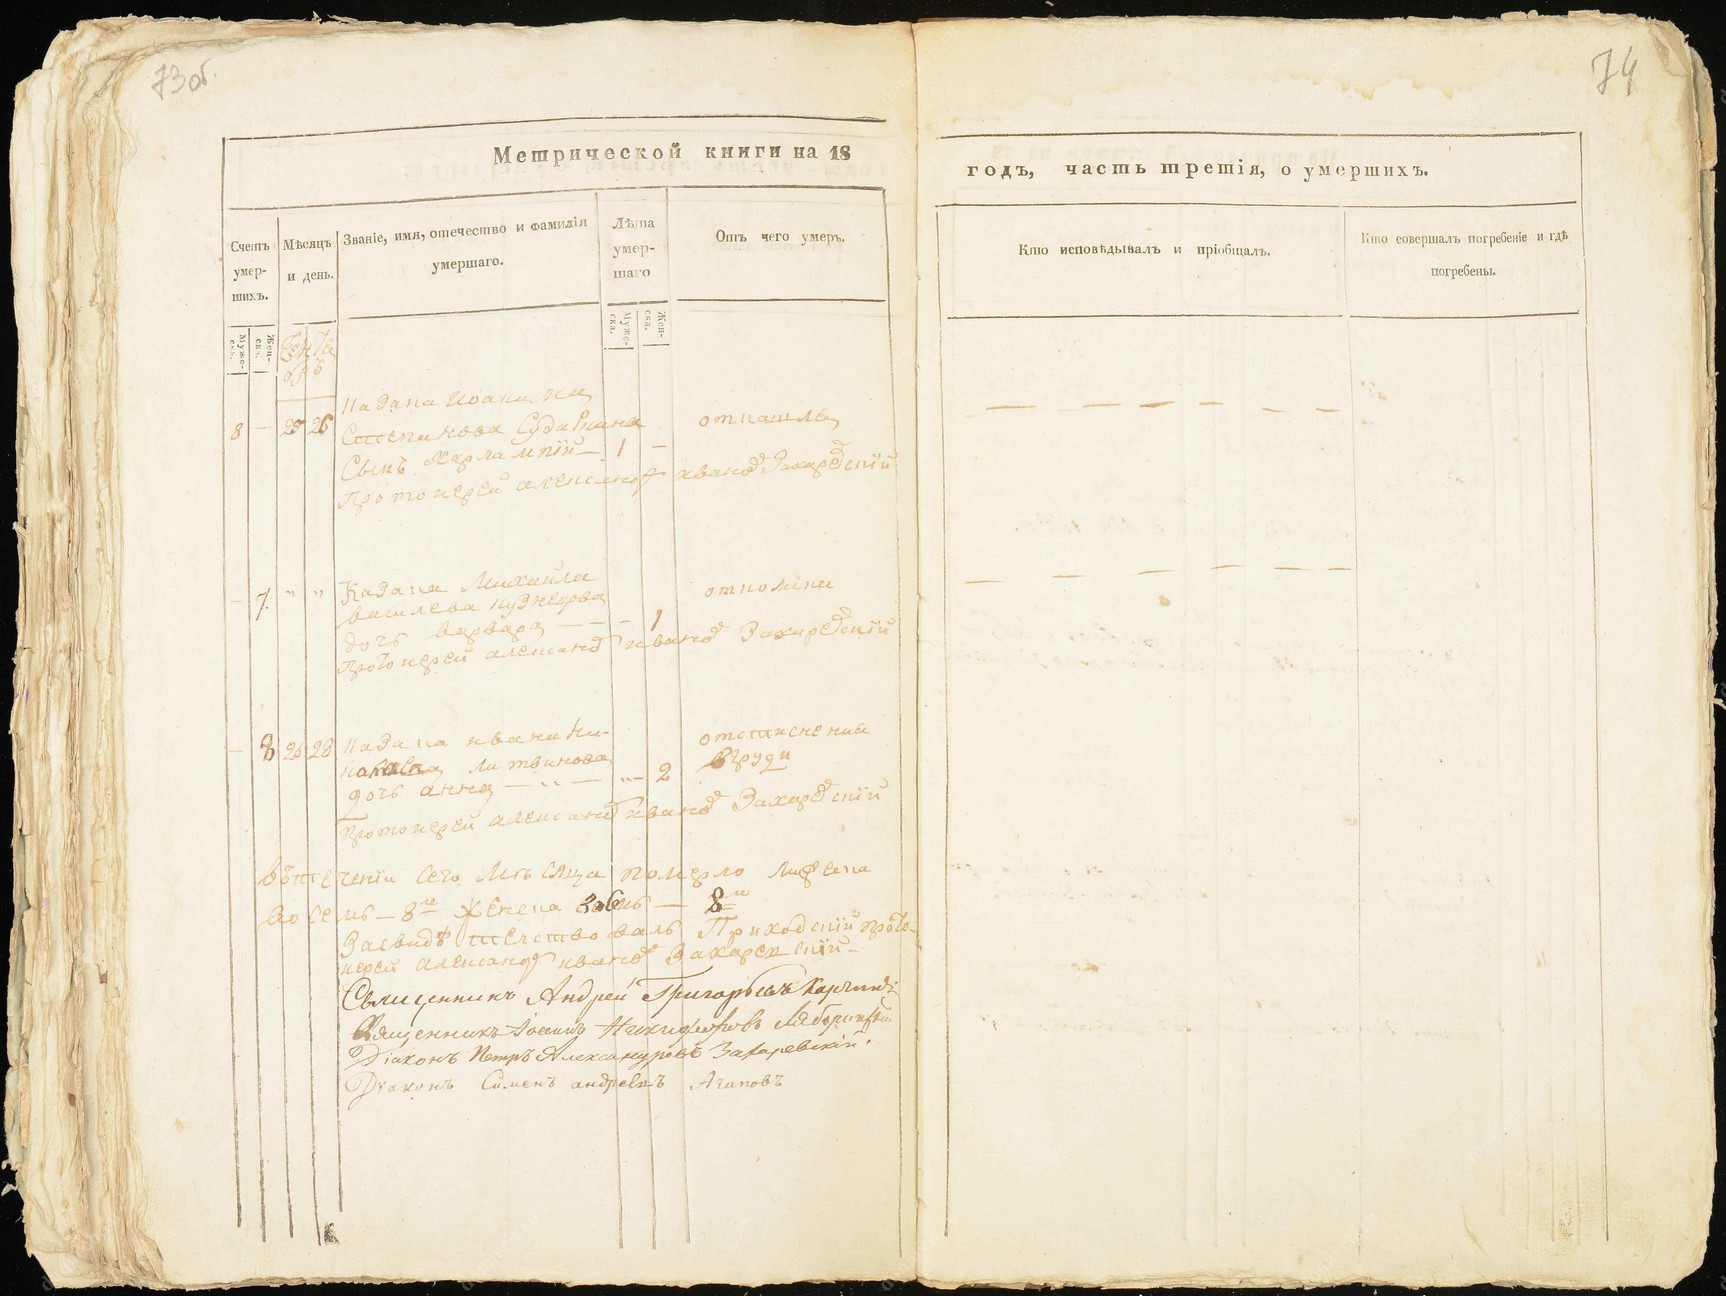 73 об.
74
Метрической книги на 18
годъ, часть третія, о умершихъ.
Счетъ умершихъ.
Мѣсяцъ и день.
Званіе, имя, отечество и фамилія умершаго.
Лѣта умершаго
Отъ чего умеръ.
Кто исповѣдывалъ и пріобщалъ.
Кто совершалъ погребеніе и гдѣ погребены.
Мужеска.
Женска.
Мужеска.
Женска.
8 — 25 26
Казака Иоаникиа
Сынъ Харлампій — 1 —
от кашля
Протоиерей александр иванов Захаревский
— 7. " "
Казака Михаила
василева кузнецова
дочь варвара — — 1
Протоиерей александ иванов Захаревский
— 8 26 28
Казака ивана
литвинова
дочь анна — " — " — 2
от стиснений
в груди
Протоиерей александ иванов Захаревский
въ течении сего мѣсяца померло мужеска
восемь — 8 женска — 8
Засвидѣтелствовалъ Приходский прото-
иерей александ иванов Захаревский
Священникъ Андрей Григорьевъ
Священникъ Никифоровъ
Діаконъ Петръ Александровъ Захаревскій.
Діаконъ Симеонъ андреевъ Агаповъ